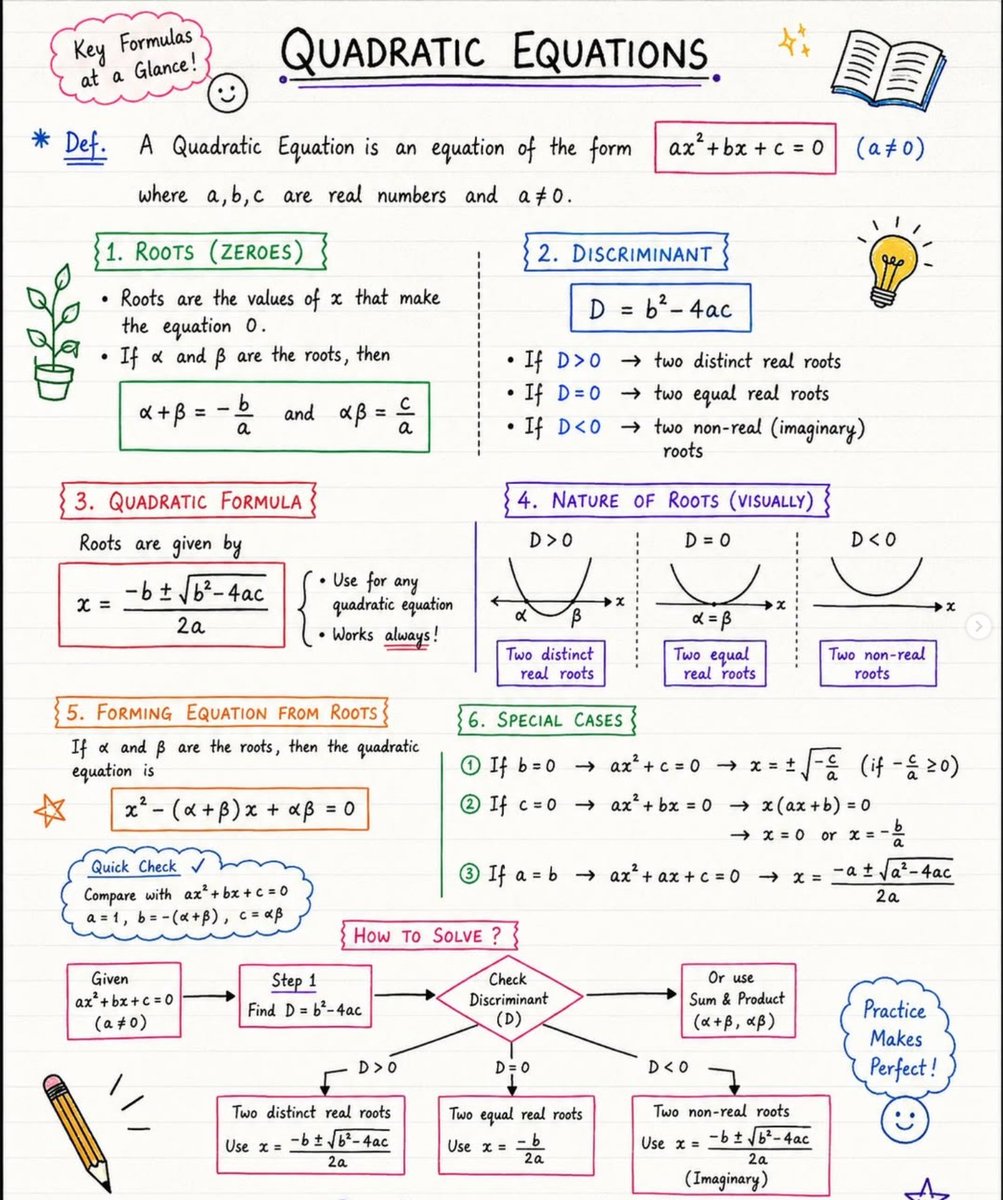 Key Formulas
at a Glance!
QUADRATIC EQUATIONS
* Def. A Quadratic Equation is an equation of the form ax²+bx+c = 0 (a≠0)
where a,b,c are real numbers and a≠0.
1. ROOTS (ZEROES)
• Roots are the values of x that make
the equation 0.
• If α and β are the roots, then
α+β = -b/a and αβ = c/a
2. DISCRIMINANT
D = b²-4ac
• If D>0 → two distinct real roots
• If D=0 → two equal real roots
• If D<0 → two non-real (imaginary)
roots
3. QUADRATIC FORMULA
Roots are given by
x = (-b ± √(b²-4ac))/2a
• Use for any
quadratic equation
• Works always!
4. NATURE OF ROOTS (VISUALLY)
D>0
α β x
Two distinct
real roots
D=0
α=β x
Two equal
real roots
D<0
x
Two non-real
roots
5. FORMING EQUATION FROM ROOTS
If α and β are the roots, then the quadratic
equation is
x² - (α+β)x + αβ = 0
Quick Check ✓
Compare with ax²+bx+c=0
a=1, b=-(α+β), c=αβ
6. SPECIAL CASES
① If b=0 → ax²+c=0 → x=±√(-c/a) (if -c/a ≥0)
② If c=0 → ax²+bx=0 → x(ax+b)=0
→ x=0 or x=-b/a
③ If a=b → ax²+ax+c=0 → x = (-a ± √(a²-4ac))/2a
HOW TO SOLVE?
Given
ax²+bx+c=0
(a≠0)
Step 1
Find D=b²-4ac
Check
Discriminant
(D)
Or use
Sum & Product
(α+β, αβ)
D>0
D=0
D<0
Two distinct real roots
Use x = (-b ± √(b²-4ac))/2a
Two equal real roots
Use x = -b/2a
Two non-real roots
Use x = (-b ± √(b²-4ac))/2a
(Imaginary)
Practice
Makes
Perfect!